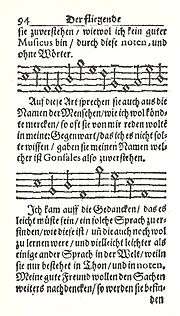 94 Der fliegende
sie zuverstehen / wiewol ich kein guter
Musicus bin / durch diese noten, und
ohne Wörter.
Auf diese Art sprechen sie auch aus die
Namen der Menschen / wie ich wol könd-
te mercken / so oft sie von mir redẽ wolt
in meine Gegenwart / das ich es nicht sol-
te wissen / gaben sie meinen Namen wel-
cher ist Gonsales also zuverstehen.
Ich kam auff die Gedancken / das es
leicht müste sein / ein solche Sprach zu er-
finden / wie diese ist / uñ die auch noch wol
zu lernen were / und vielleicht leichter als
einige ander Sprach in der Welt / weiln
sie nur bestehet in Thon / und in noten.
Meine gute Freund wollen den Sachen
weiters nachdencken / so werden sie befin-
den